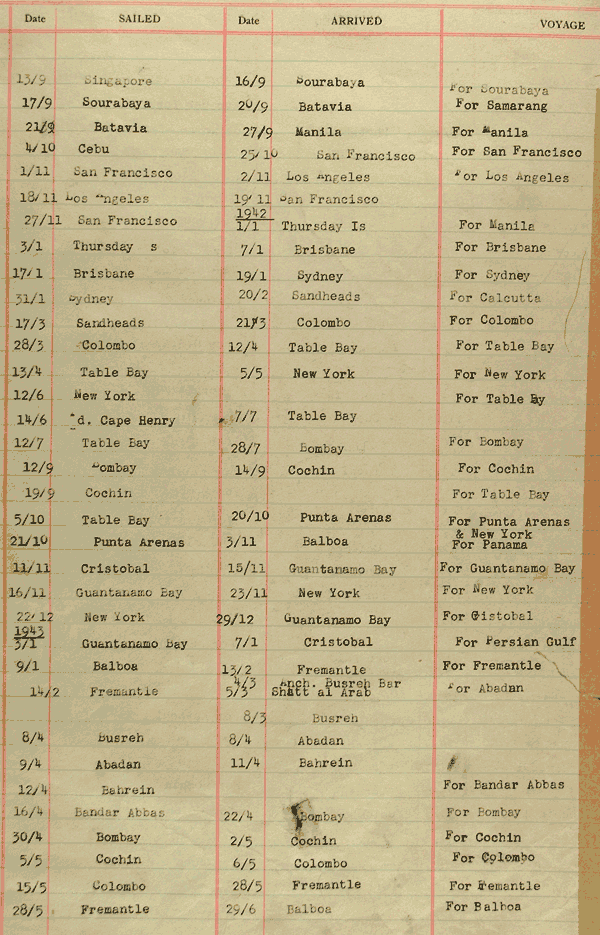 Date SAILED Date ARRIVED VOYAGE
13/9 Singapore 16/9 Sourabaya For Sourabaya
17/9 Sourabaya 20/9 Batavia For Samarang
21/9 Batavia 27/9 Manila For Manila
4/10 Cebu 25/10 San Francisco For San Francisco
1/11 San Francisco 2/11 Los Angeles For Los Angeles
18/11 Los Angeles 19/11 San Francisco
1942
27/11 San Francisco 1/1 Thursday Is For Manila
3/1 Thursday s 7/1 Brisbane For Brisbane
17/1 Brisbane 19/1 Sydney For Sydney
31/1 Sydney 20/2 Sandheads For Calcutta
17/3 Sandheads 21/3 Colombo For Colombo
28/3 Colombo 12/4 Table Bay For Table Bay
13/4 Table Bay 5/5 New York For New York
12/6 New York For Table Bay
14/6 d. Cape Henry 7/7 Table Bay
12/7 Table Bay 28/7 Bombay For Bombay
12/9 Bombay 14/9 Cochin For Cochin
19/9 Cochin For Table Bay
5/10 Table Bay 20/10 Punta Arenas For Punta Arenas
& New York
21/10 Punta Arenas 3/11 Balboa For Panama
11/11 Cristobal 15/11 Guantanamo Bay For Guantanamo Bay
16/11 Guantanamo Bay 23/11 New York For New York
22/12 New York 29/12 Guantanamo Bay For Cristobal
1943
3/1 Guantanamo Bay 7/1 Cristobal For Persian Gulf
9/1 Balboa 13/2 Fremantle For Fremantle
4/3 Anch. Busreh Bar
14/2 Fremantle 5/3 Shatt al Arab For Abadan
8/3 Busreh
8/4 Busreh 8/4 Abadan
9/4 Abadan 11/4 Bahrein
12/4 Bahrein For Bandar Abbas
16/4 Bandar Abbas 22/4 Bombay For Bombay
30/4 Bombay 2/5 Cochin For Cochin
5/5 Cochin 6/5 Colombo For Colombo
15/5 Colombo 28/5 Fremantle For Fremantle
28/5 Fremantle 29/6 Balboa For Balboa